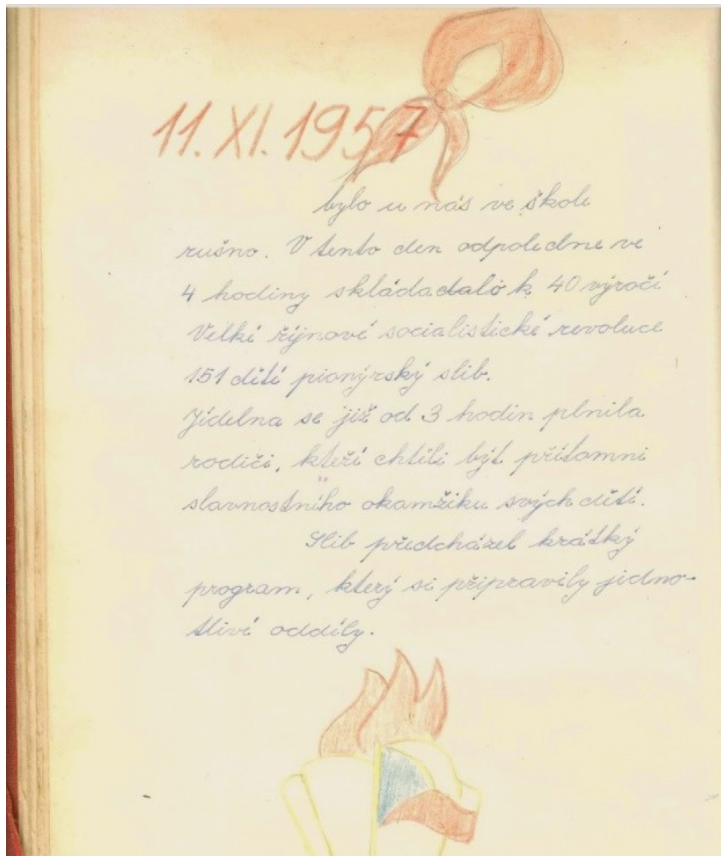 11. XI. 1957
bylo u nás ve škole
rušno. V tento den odpoledne ve
4 hodiny skládadalo k 40 výročí
Velké říjnové socialistické revoluce
151 dětí pionýrský slib.
Jídelna se již od 3 hodin plnila
rodiči, kteří chtěli být přítomni
slavnostního okamžiku svých dětí.
Slib předcházel krátký
program, který si připravily jedno-
tlivé oddíly.